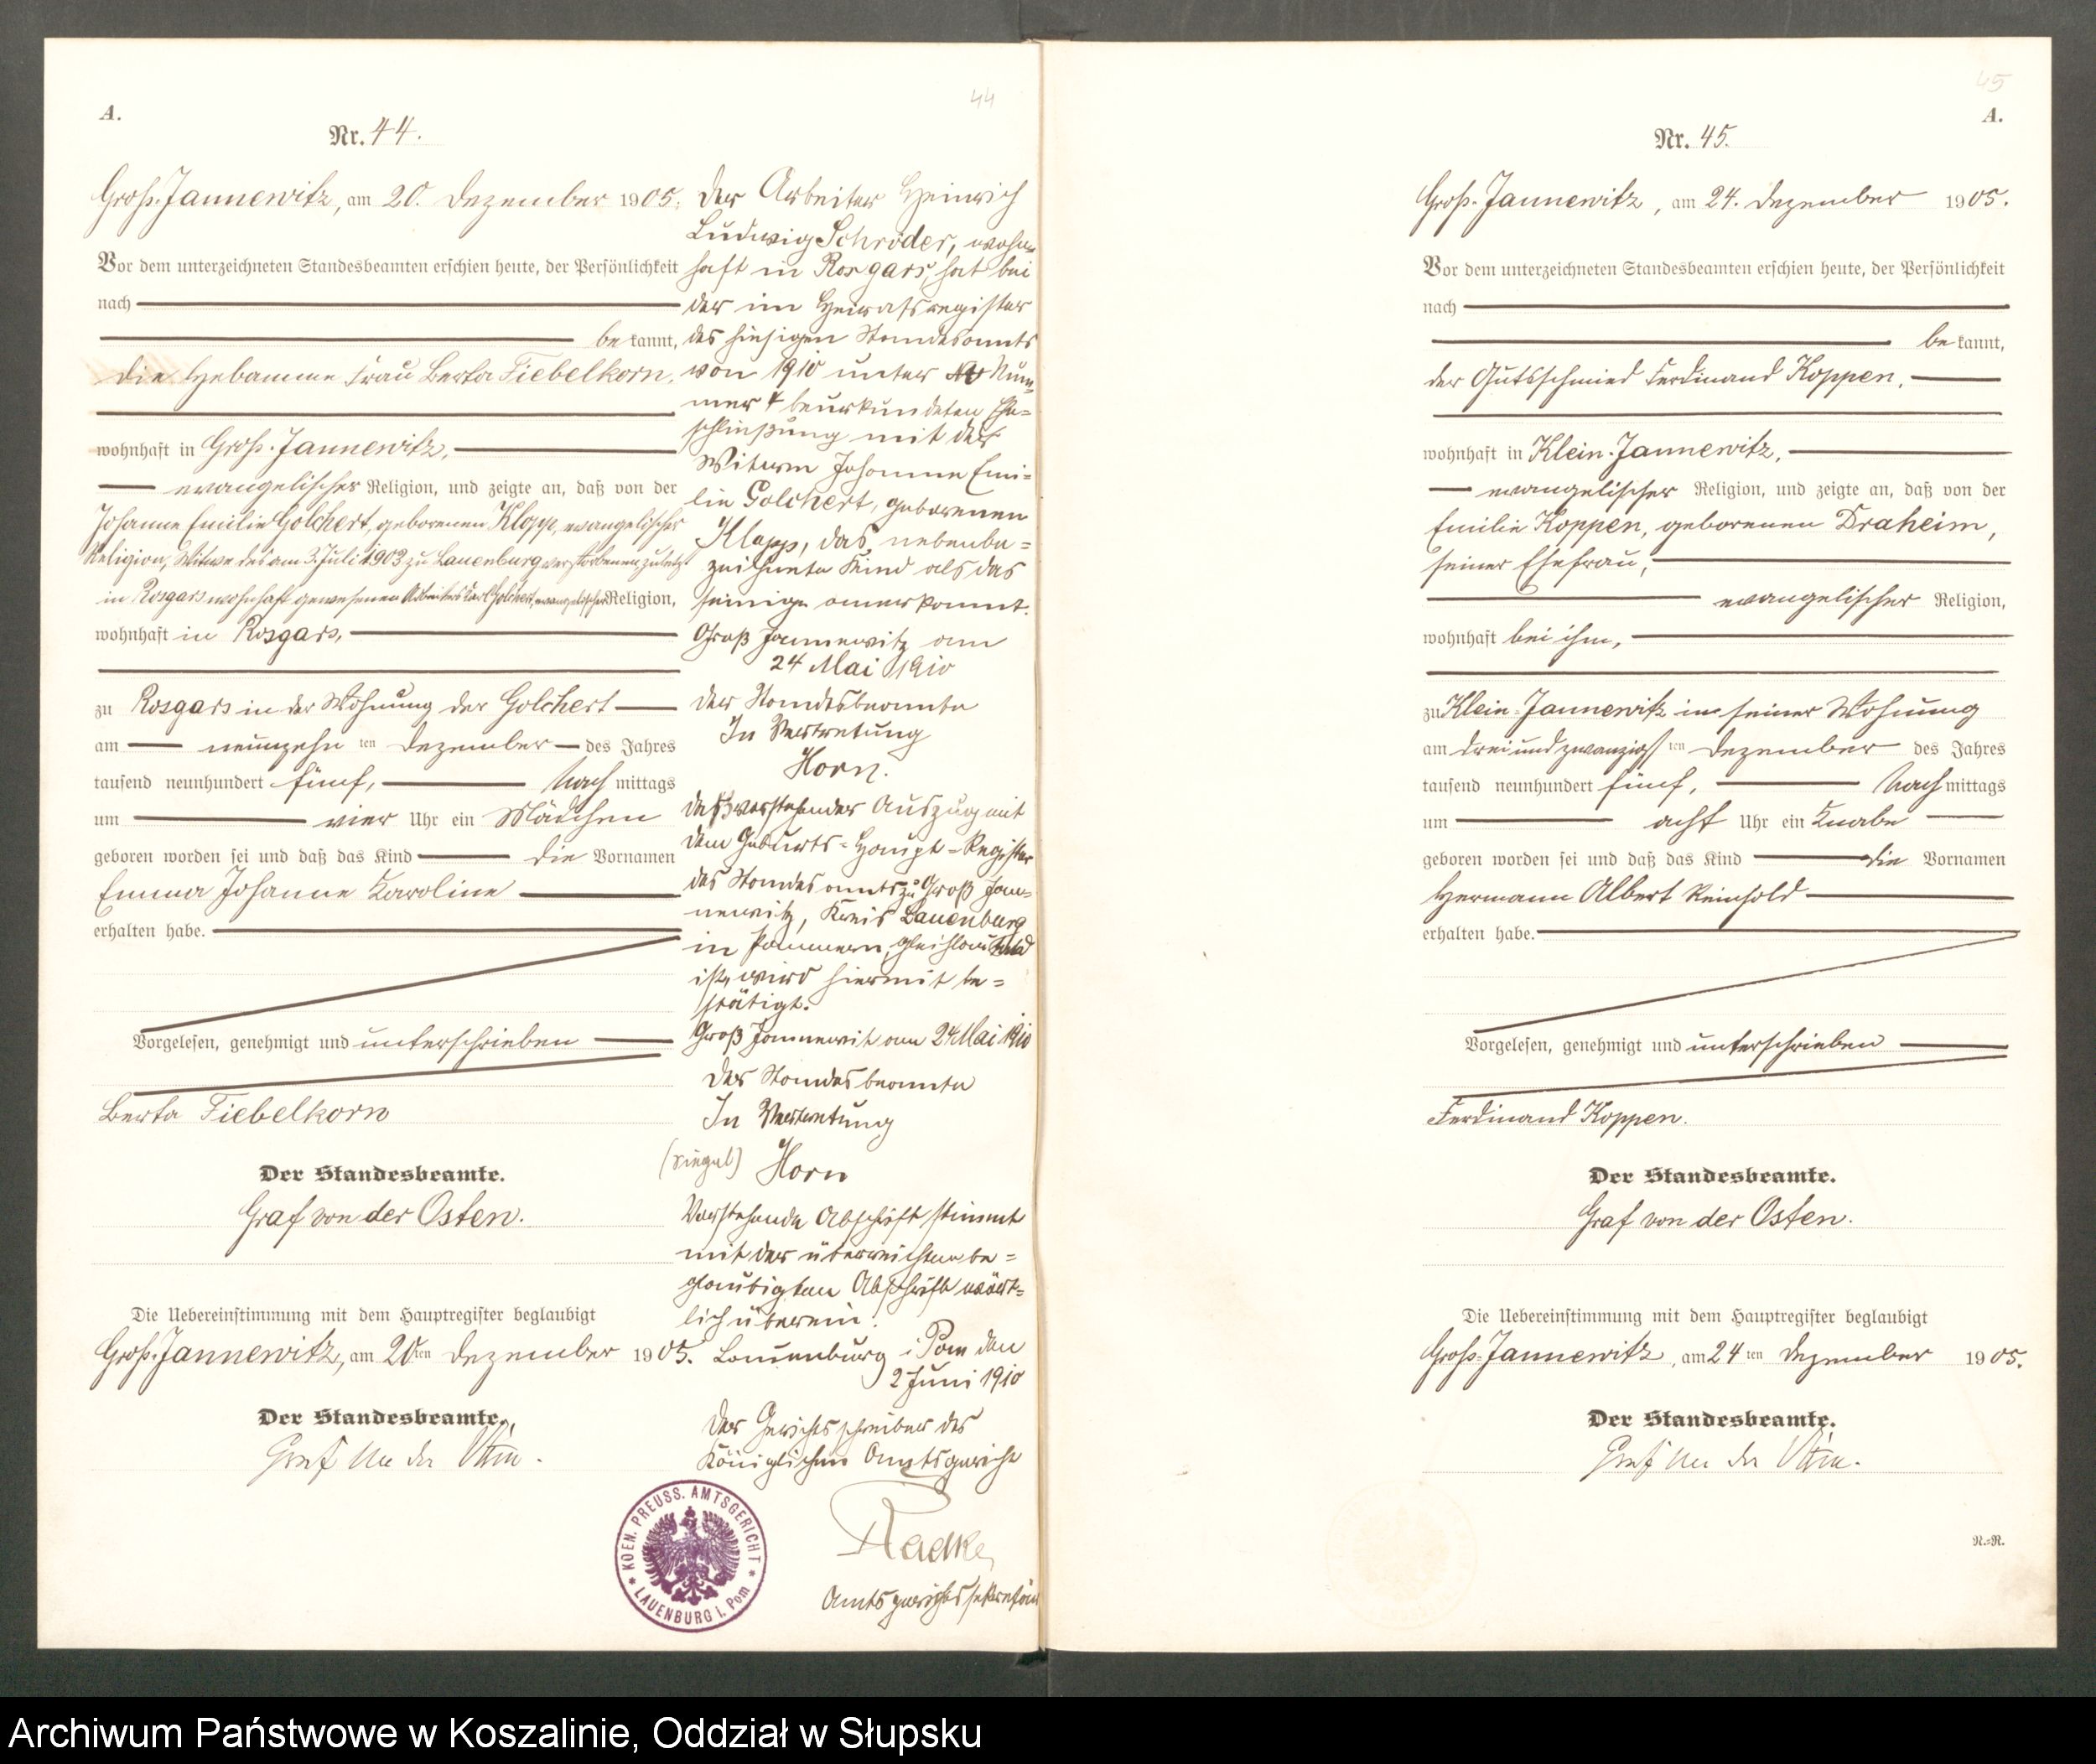 44
A.
Nr. 44.
Groß-Jannewitz, am 20. Dezember 1905.
Vor dem unterzeichneten Standesbeamten erschien heute, der Persönlichkeit
nach
bekannt,
die Hebamme Frau Berta Fiebelkorn,
wohnhaft in Groß-Jannewitz,
evangelischer Religion, und zeigte an, daß von der
Johanne Emilie Golchert, geborenen Klopp, evangelischer
Religion, Witwe des am 3. Juli 1903 zu Lauenburg verstorbenen zuletzt
in Rosgars wohnhaft gewesenen Arbeiters Karl Golchert, evangelischer Religion,
wohnhaft in Rosgars,
zu Rosgars in der Wohnung der Golchert
am neunzehnten Dezember des Jahres
tausend neunhundert fünf, Nachmittags
um vier Uhr ein Mädchen
geboren worden sei und daß das Kind die Vornamen
Emma Johanne Karoline
erhalten habe.
Vorgelesen, genehmigt und unterschrieben
Berta Fiebelkorn
Der Standesbeamte.
Graf von der Osten.
Die Uebereinstimmung mit dem Hauptregister beglaubigt
Groß-Jannewitz, am 20ten Dezember 1905.
Der Standesbeamte.
Graf von der Osten.
Der Arbeiter Heinrich
Ludwig Schröder, wohn-
haft in Rosgars, hat bei
der im Heiratsregister
des hiesigen Standesamts
von 1910 unter Num-
mer 4 beurkundeten Ehe-
schließung mit der
Witwe Johanne Emi-
lie Golchert, geborenen
Klopp, das nebenbe-
zeichnete Kind als das
seinige anerkannt.
Groß Jannewitz am
24 Mai 1910
Der Standesbeamte
In Vertretung
Horn.
Daß vorstehender Auszug mit
dem Geburts-Haupt-Register
des Standesamts zu Groß Jan-
newitz, Kreis Lauenburg
in Pommern, gleichlautend
ist, wird hiermit be-
stätigt.
Groß Jannewitz am 24 Mai 1910
Der Standesbeamte
In Vertretung
(Siegel) Horn
Vorstehende Abschrift stimmt
mit der überreichten be-
glaubigten Abschrift wört-
lich überein.
Lauenburg i Pom den
2 Juni 1910
Der Gerichtsschreiber des
Königlichen Amtsgericht
Radke
Amtsgerichtssekretär
KOEN. PREUSS. AMTSGERICHT * LAUENBURG i. Pom *
45
A.
Nr. 45.
Groß-Jannewitz, am 24. Dezember 1905.
Vor dem unterzeichneten Standesbeamten erschien heute, der Persönlichkeit
nach
bekannt,
der Gutsschmied Ferdinand Koppen,
wohnhaft in Klein-Jannewitz,
evangelischer Religion, und zeigte an, daß von der
Emilie Koppen, geborenen Draheim,
seiner Ehefrau,
evangelischer Religion,
wohnhaft bei ihm,
zu Klein-Jannewitz in seiner Wohnung
am drei und zwanzigsten Dezember des Jahres
tausend neunhundert fünf, Nachmittags
um acht Uhr ein Knabe
geboren worden sei und daß das Kind die Vornamen
Hermann Albert Reinhold
erhalten habe.
Vorgelesen, genehmigt und unterschrieben
Ferdinand Koppen.
Der Standesbeamte.
Graf von der Osten.
Die Uebereinstimmung mit dem Hauptregister beglaubigt
Groß-Jannewitz, am 24ten Dezember 1905.
Der Standesbeamte.
Graf von der Osten.
N.=R.
Archiwum Państwowe w Koszalinie, Oddział w Słupsku